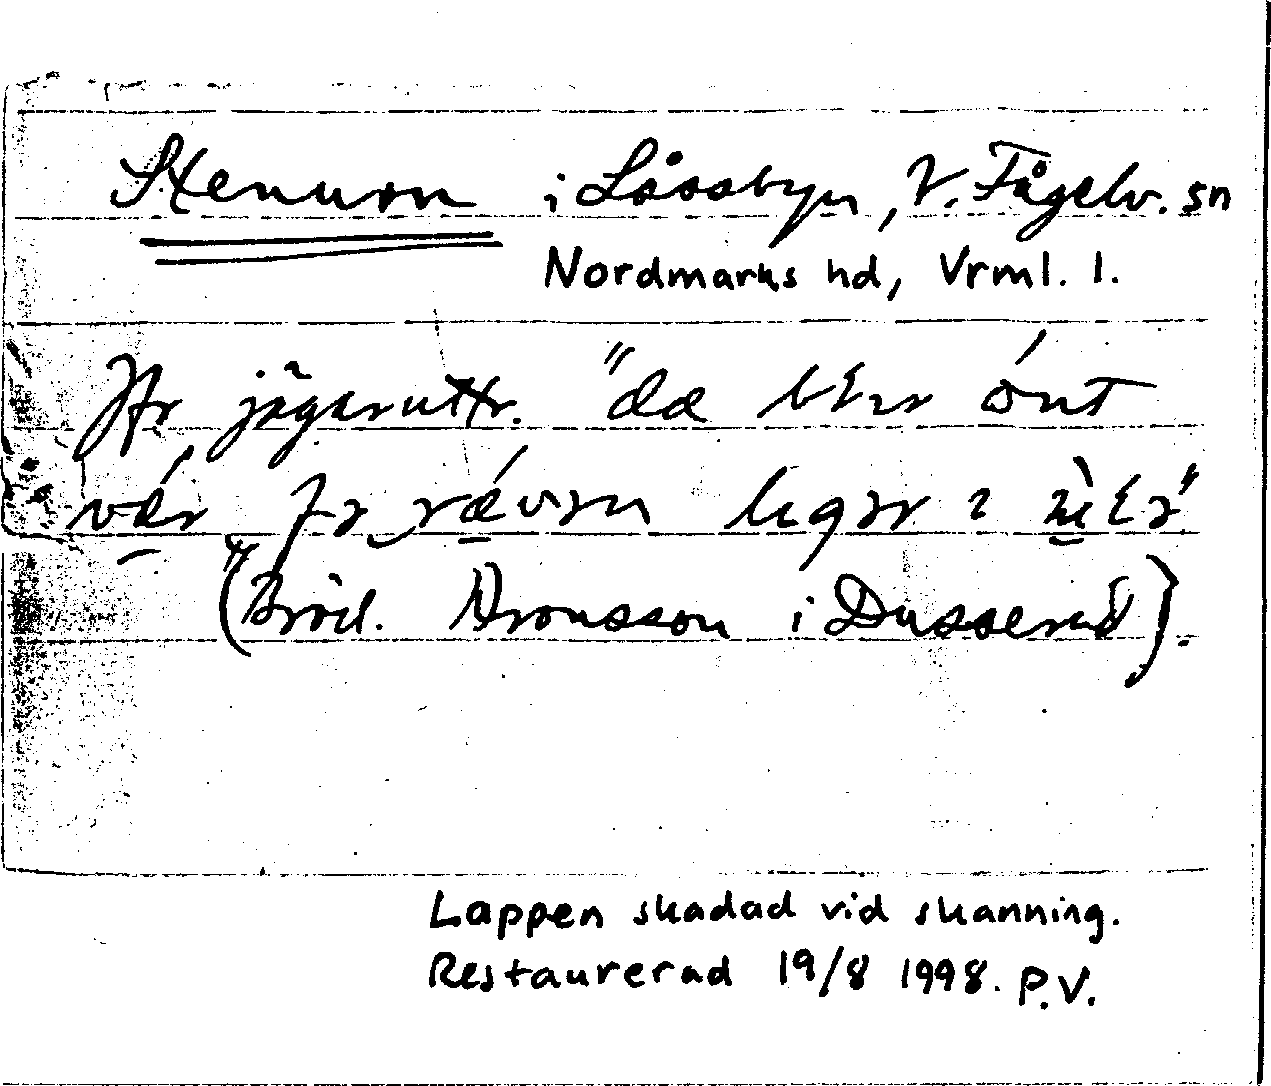 Stenuren i Låssbyn, V. Fågelv. sn
Nordmarks hd, Vrml. l.
Jfr jägaruttr. "dä blir ónt
vǽr fr rǽven ligər i
(Bröd. Aronsson i Dusserud).
Lappen skadad vid skanning.
Restaurerad 19/8 1998. P.V.